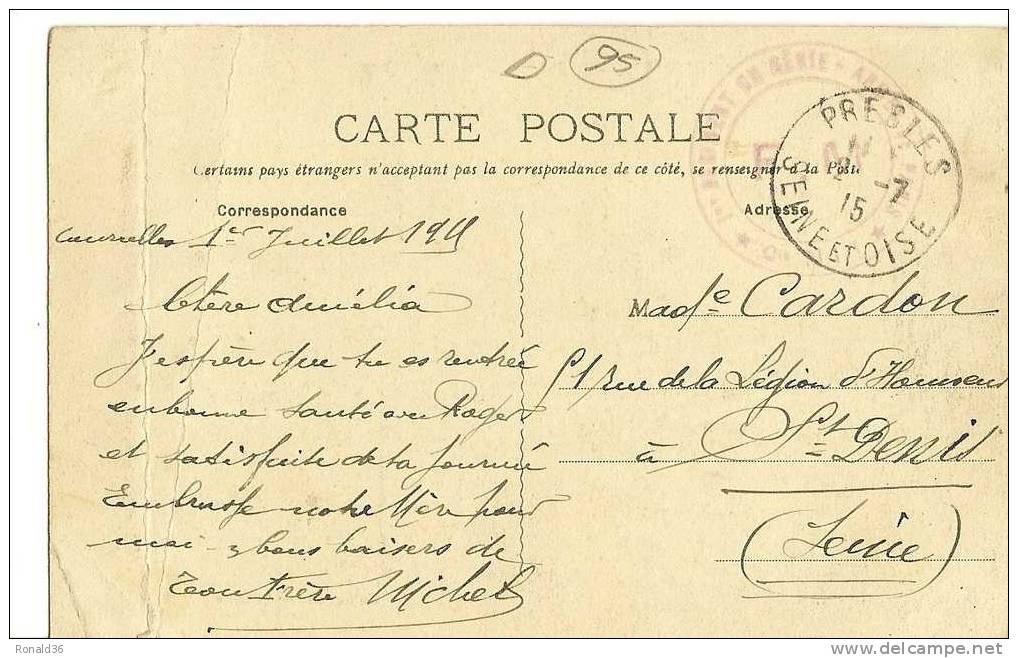 95
CARTE POSTALE
Certains pays étrangers n'acceptant pas la correspondance de ce côté, se renseigner à la Poste
Correspondance
Adresse
PRESLES
-7
15
SEINE ET OISE
DU GÉNIE
1er Juillet 191
Chère Amélia
J'espère que tu es rentrée
en bonne santé avec Roger
et satisfaite de ta journée
Embrasse notre Mère pour
moi bons baisers de
Ton Frère Michel
Made Cardon
51 rue de la Légion d'Honneur
à St Denis
(Seine)
Ronald36
delcampe.net